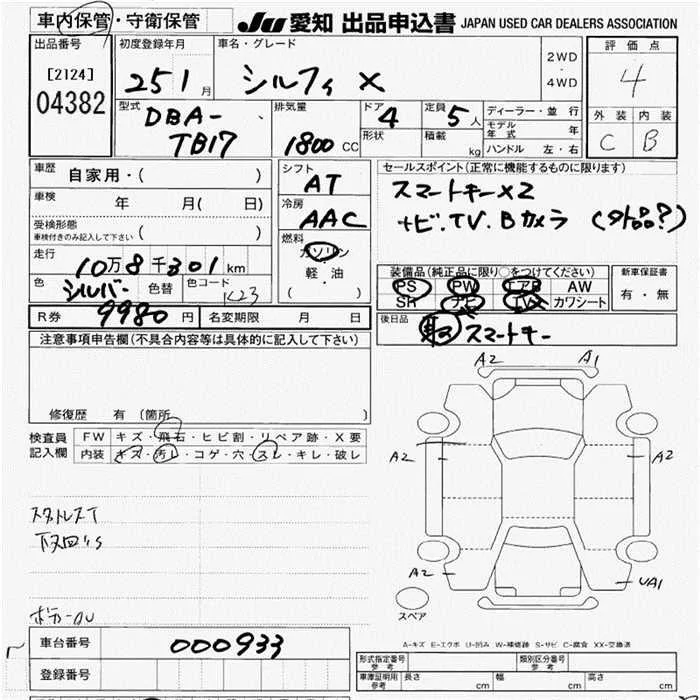 車内保管・守衛保管
JU 愛知 出品申込書 JAPAN USED CAR DEALERS ASSOCIATION
出品番号 初度登録年月 車名・グレード 評価点
[2124] 04382
25 1 月 シルフィ X 2WD ・ 4WD 4
型式 DBA-TB17 排気量 1800 CC ドア 4 定員 5 人 ディーラー・並行
形状 積載 kg モデル年式 年
ハンドル 左・右
外装 内装
C B
車歴 自家用・( )
車検 年 月( 日)
受検形態
車検付きのみ記入して下さい ( )
走行 10万8千301km
色 シルバー 色替 色コード K23
シフト AT
冷房 AAC
燃料 ガソリン
軽・油
( )
セールスポイント(正常に機能するものに限ります)
スマートキーX2
ナビ.TV.Bカメラ (外品?)
装備品(純正品に限り○をつけてください) 新車保証書
PS PW エアB AW 有・無
SR ナビ TV カワシート
R券 9980 円 名変期限 月 日
後日品 スマートキー
注意事項申告欄(不具合内容等は具体的に記入して下さい)
修復歴 有 (箇所 )
検査員記入欄 FW キズ・飛石・ヒビ割・リペア跡・X要
内装 キズ・汚レ・コゲ・穴・スレ・キレ・破レ
A2 A1
A2 A2
A2 UA1
スペア
スタッドレスT
下回りS
車台番号 000933
登録番号
A-キズ E-エクボ U-凹み W-補修跡 S-サビ C-腐食 XX-交換済
形式指定番号 参考 類別区分番号 参考
車庫証明用 参考 長さ cm 幅 cm 高さ cm